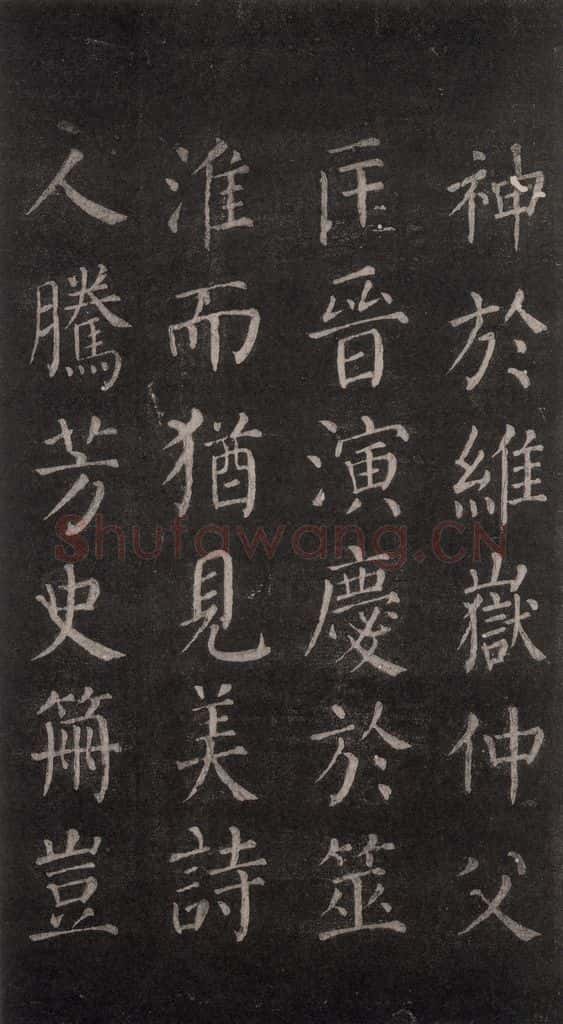 神於維嶽仲父
匡晉演慶於筮
淮而猶見美詩
人騰芳史笧豈
Shufawang.CN